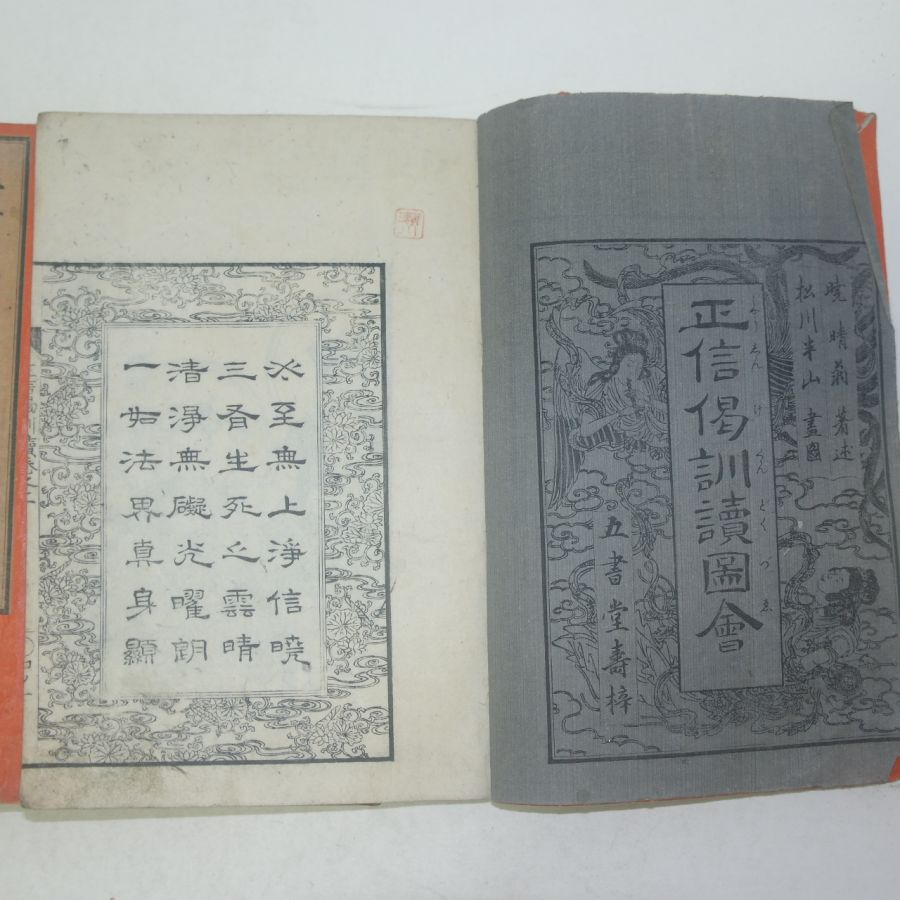 曉晴翁著述
松川半山畫圖
正信偈訓讀圖會
け くん とく つ ゑ
五書堂壽梓
必至無上淨信曉
三有生死之雲晴
清淨無礙光曜朗
一如法界真身顯